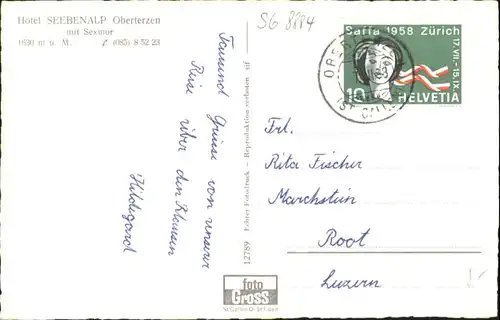 Hotel SEEBENALP Oberterzen
mit Sexmor
1630 m ü. M. (085) 8 52 23
SG 8884
Tausend Grüsse von unserer
Reise über den Klausen
Hildegard
12789 Echter Fotodruck - Reproduktion verboten
foto
Gross
St. Gallen
Saffa 1958 Zürich
17.VII.-15.IX.
10
HELVETIA
Frl.
Rita Fischer
Marchstein
Root
Luzern